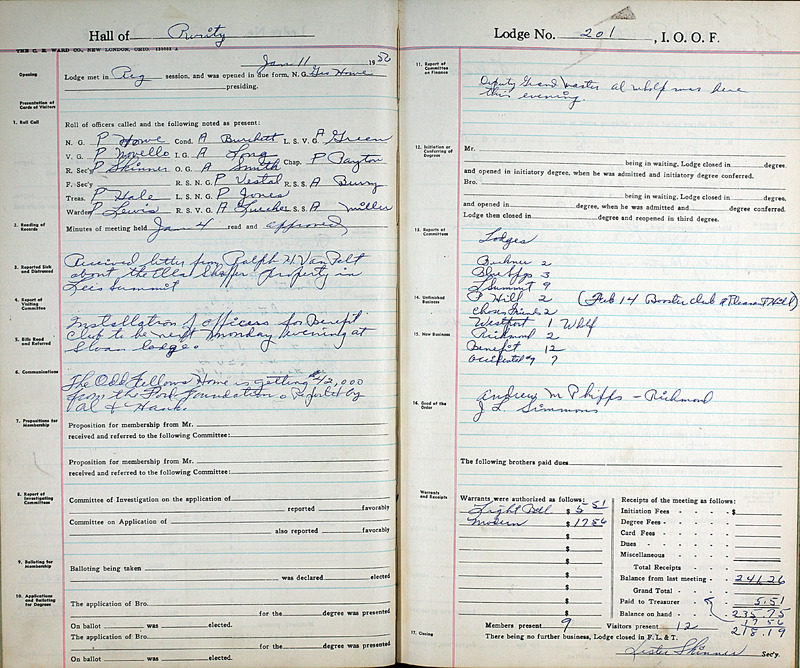 Hall of Purity
THE C. E. WARD CO., NEW LONDON, OHIO.
Jan 11 1956
Opening
Lodge met in Reg session, and was opened in due form, N. G. Geo Howe
presiding.
Presentation of Cards of Visitors
1. Roll Call
Roll of officers called and the following noted as present:
N. G. P Howe Cond. A Burkett L. S. V. G. A Green
V. G. P Novello I. G. A Long Chap. P Payton
R. Sec'y P Skinner O. G. A Smith
F. Sec'y R. S. N. G. P Vestal R. S. S. A Burry
Treas. P Hale L. S. N. G. P Jones
Warden P Lewis R. S. V. G. A Lurcher L. S. S. A Miller
2. Reading of Records
Minutes of meeting held Jan 4 read and approved
3. Reported Sick and Distressed
Received letter from Ralph H VanPelt
about the Ella Shaffer property in
Lees Summit
4. Report of Visiting Committee
Installation of officers for Benefit
5. Bills Read and Referred
Club to be next Monday evening at
Sloan lodge.
6. Communications
The Odd Fellows Home is getting $42,000
from the Ford Foundation. Reported by
Val & Hank.
7. Propositions for Membership
Proposition for membership from Mr.
received and referred to the following Committee:
Proposition for membership from Mr.
received and referred to the following Committee:
8. Report of Investigating Committees
Committee of Investigation on the application of
reported favorably
Committee on Application of
also reported favorably
9. Balloting for Membership
Balloting being taken
was declared elected
10. Applications and Balloting for Degrees
The application of Bro.
for the degree was presented
On ballot was elected.
The application of Bro.
for the degree was presented
On ballot was elected.
Lodge No. 201, I. O. O. F.
11. Report of Committee on Finance
Deputy Grand Master Al Whlf was here
this evening.
12. Initiation or Conferring of Degrees
Mr.
being in waiting, Lodge closed in degree
and opened in initiatory degree, when he was admitted and initiatory degree conferred.
Bro.
being in waiting, Lodge closed in degree,
and opened in degree, when he was admitted and degree conferred.
Lodge then closed in degree and reopened in third degree.
13. Reports of Committees
Lodges
Buckner 2
Blue Spgs 3
L Summit 9
14. Unfinished Business
P Hill 2 (Feb 14 Booster club at Pleasant Hill)
Chosen Friends 2
Westport 1 Whlf
15. New Business
Richmond 2
Benefit 12
Occidental 9 7
16. Good of the Order
Andrew M Phipps - Richmond
J L Simmons
The following brothers paid dues
Warrants and Receipts
Warrants were authorized as follows:
Light Bill $ 5 51
Modern $ 17 56
$
$
$
$
$
$
$
Receipts of the meeting as follows:
Initiation Fees $
Degree Fees
Card Fees
Dues
Miscellaneous
Total Receipts
Balance from last meeting 241.26
Grand Total
Paid to Treasurer 5.51
Balance on hand 235 75
17 56
218.19
Members present 9 Visitors present 12
17. Closing
There being no further business, Lodge closed in F. L. & T.
Lester Skinner Sec'y.